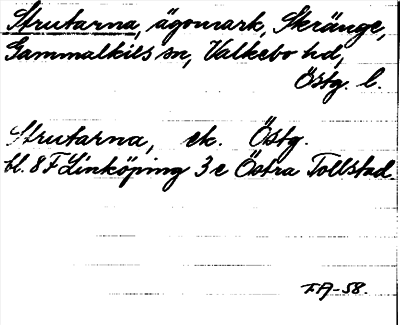 Strutarna, ägomark, Skränge,
Gammalkils sn, Valkebo hd,
Östg. l.
Strutarna, ek. Östg.
bl. 8 F Linköping 3 e Östra Tollstad.
FA-58.